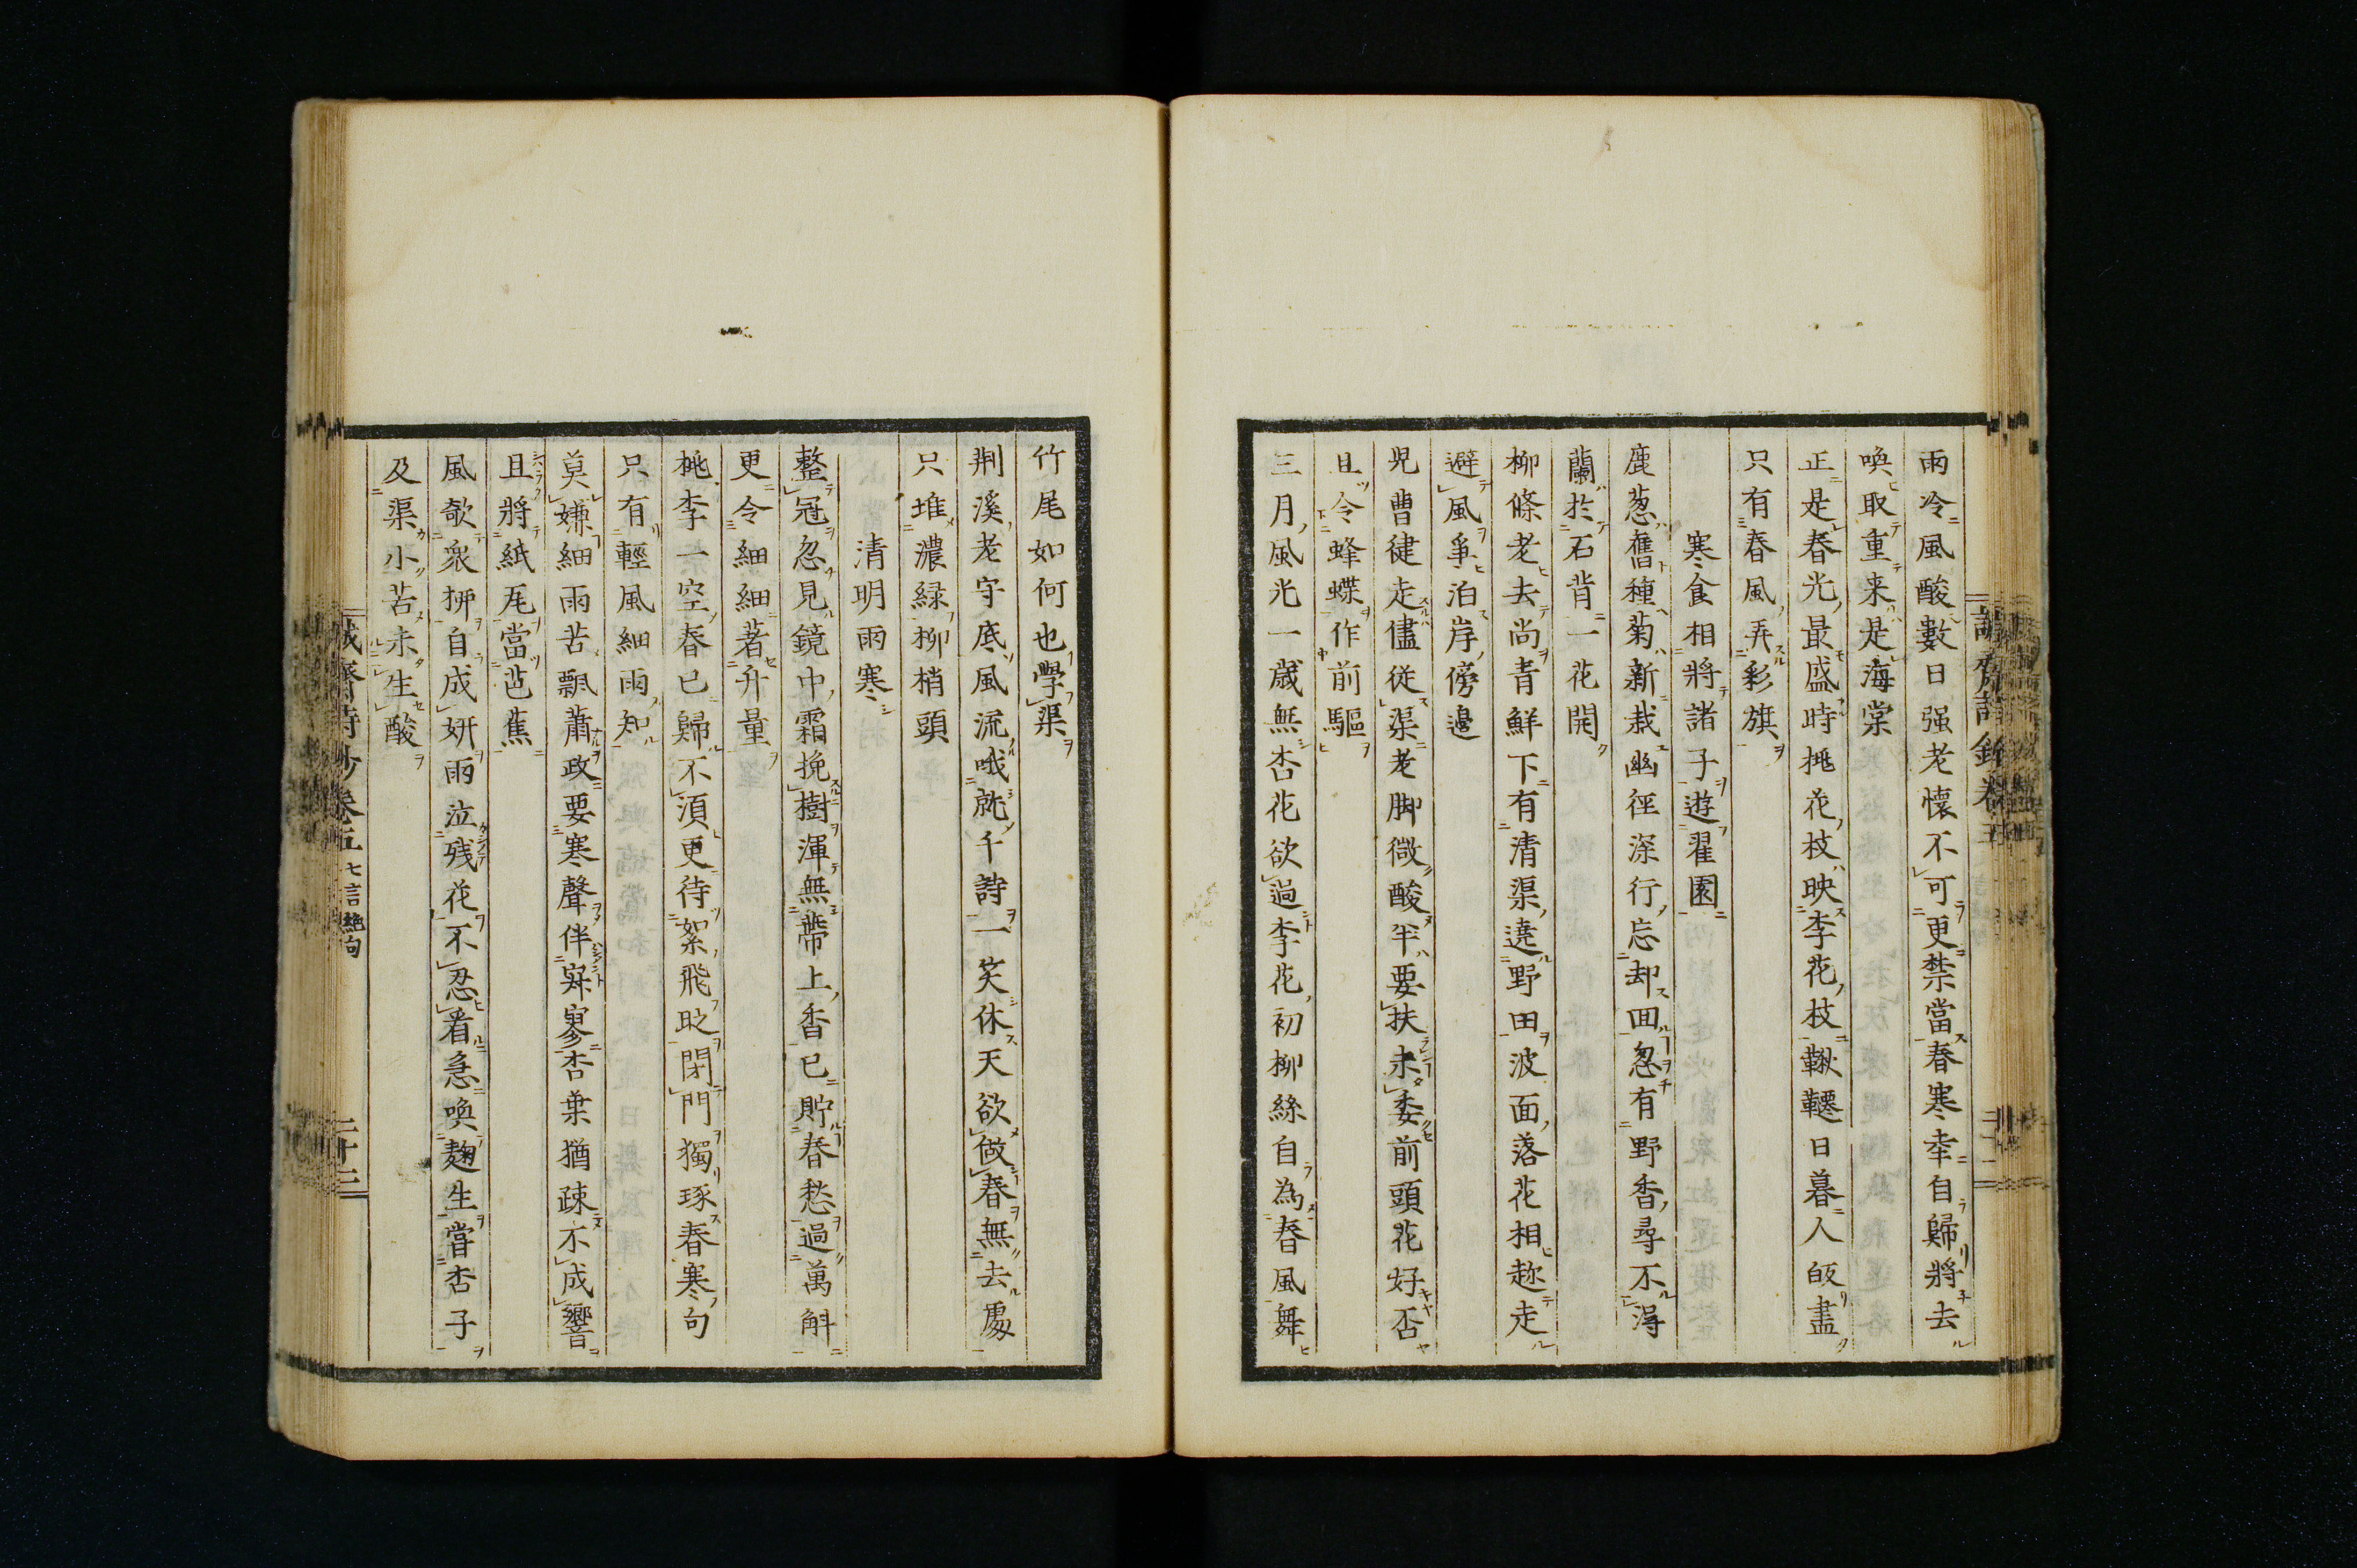 雨冷風酸數日强老懷不可更禁當春寒幸自歸將去
喚取重来是海棠
正是春光最盛時桃花枝映李花枝鞦韆日暮人皈盡
只有春風弄彩旗
寒食相將諸子遊翟園
鹿葱舊種菊新栽幽徑深行忘却回忽有野香尋不得
蘭於石背一花開
柳條老去尚青鮮下有清渠遶野田波面落花相趂走
避風爭泊岸傍邊
兒曹健走儘従渠老脚微酸半要扶未委前頭花好否
且令蜂蝶作前驅
三月風光一歳無杏花欲過李花初柳絲自為春風舞
竹尾如何也學渠
荆溪老守底風流哦就千詩一笑休天欲做春無去處
只堆濃緑柳梢頭
清明雨寒
整冠忽見鏡中霜挽樹渾無帶上香已貯春愁過萬斛
更令細細著升量
桃李一空春已歸不須更待絮飛時閉門獨琢春寒句
只有輕風細雨知
莫嫌細雨苦飄蕭政要寒聲伴寂寥杏葉猶疎不成響
且將紙尾當芭蕉
風欹衆栁自成妍雨泣残花不忍看急喚麹生嘗杏子
及渠小苦未生酸
誠齋詩鈔卷五 七言絶句 二十三